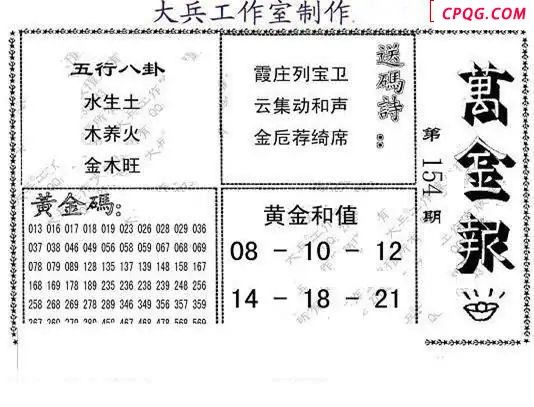 大兵工作室制作
CPQG.COM
五行八卦
水生土
木养火
金木旺
霞庄列宝卫
云集动和声
金卮荐绮席
送碼詩：
萬金報
第154期
黄金碼：
013 016 017 018 019 023 026 028 029 036
037 038 046 049 048 059 056 057 068 069
078 079 089 128 136 139 145 148 158 167
168 169 178 189 235 236 238 239 245 256
258 268 269 278 289 347 346 356 357 359
367 369 368 378 389 457 467 468 478 569
黄金和值
08 - 10 - 12
14 - 18 - 21